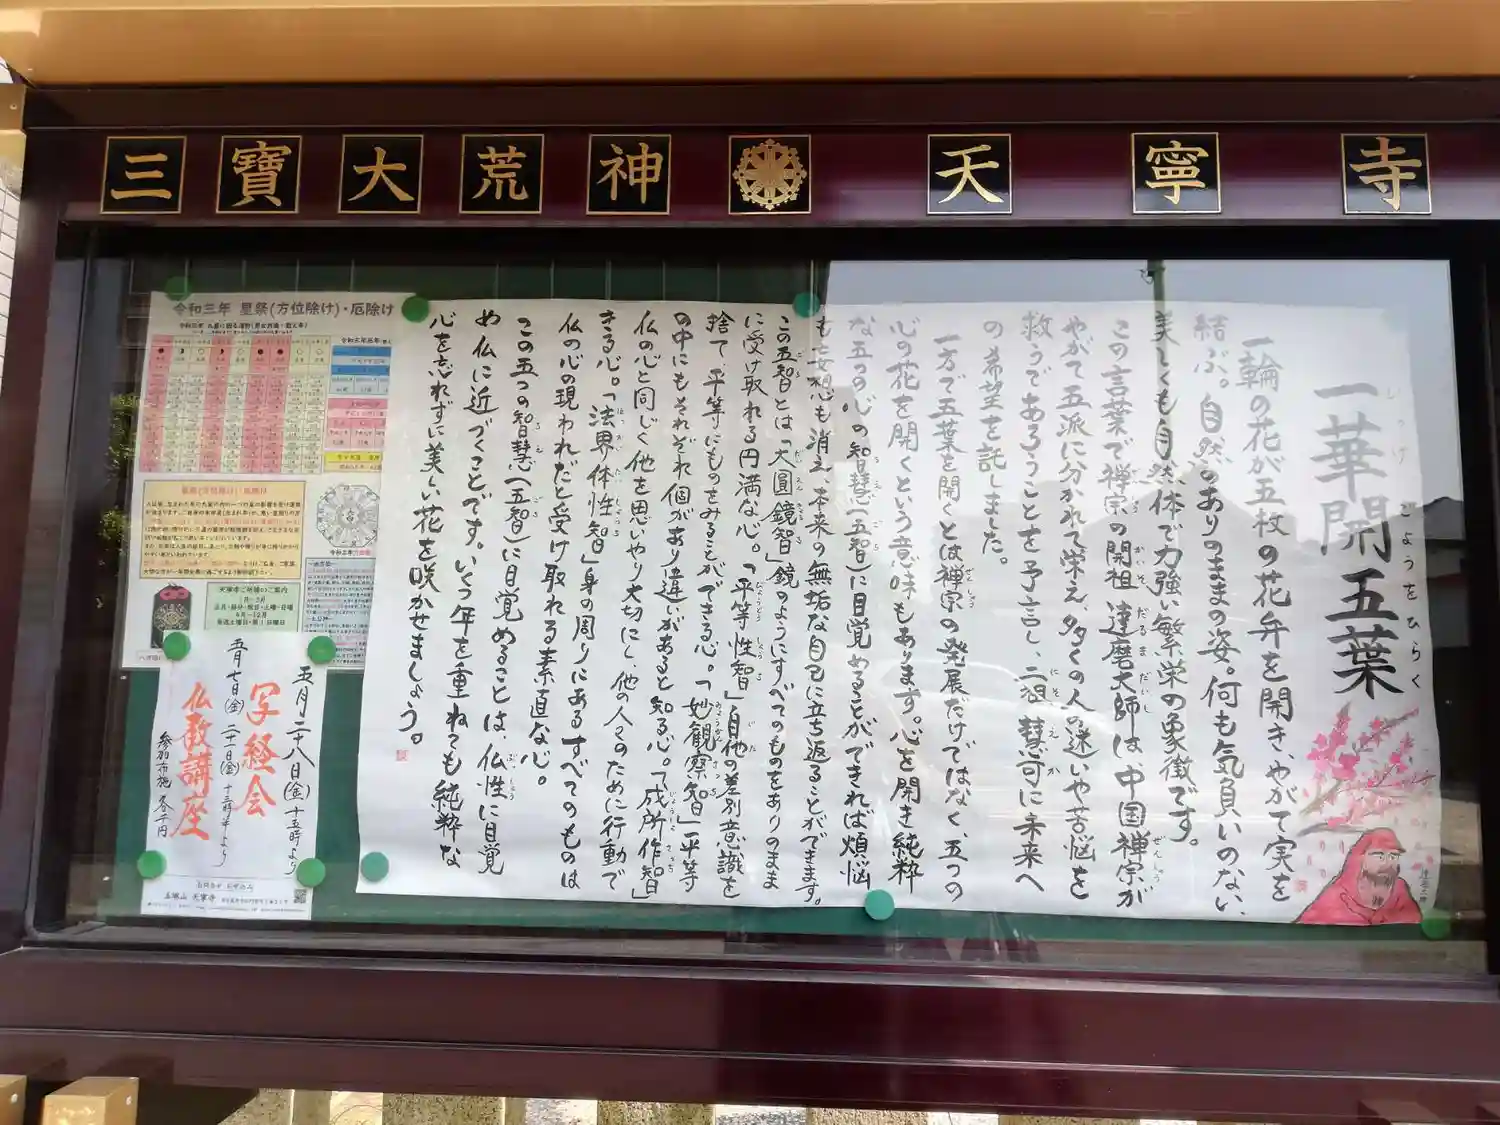 三寶大荒神 天寧寺
一華開五葉
いっけ ごようをひらく
一輪の花が五枚の花弁を開き、やがて実を
結ぶ。自然のありのままの姿。何も気負いのない、
美しくも自然体で力強い繁栄の象徴です。
この言葉で禅宗の開祖 達磨大師は、中国禅宗が
やがて五派に分かれて栄え、多くの人の迷いや苦悩を
救うであろうことを予言し 二祖 慧可に未来へ
の希望を託しました。
一方で五葉を開くとは禅宗の発展だけではなく、五つの
心の花を開くという意味もあります。心を開き純粋
な五つの心の智慧(五智)に目覚めることができれば煩悩
も妄想も消え、本来の無垢な自己に立ち返ることができます。
この五智とは「大圓鏡智」鏡のようにすべてのものをありのまま
に受け取れる円満な心。「平等性智」自他の差別意識を
捨て平等にものをみることができる心。「妙観察智」平等
の中にもそれぞれ個があり違いがあると知る心。「成所作智」
仏の心と同じく他を思いやり大切にし、他の人々のために行動で
きる心。「法界体性智」身の周りにあるすべてのものは
仏の心の現われだと受け取れる素直な心。
この五つの智慧(五智)に目覚めることは、仏性に目覚
め仏に近づくことです。いくつ年を重ねても純粋な
心を忘れずに美しい花を咲かせましょう。
令和三年 星祭(方位除け)・厄除け
天寧寺ご祈祷のご案内
五月二十八日(金)十五時より
写経会
五月七日(金)二十一日(金)十三時半より
仏教講座
参加布施 各千円
天寧寺